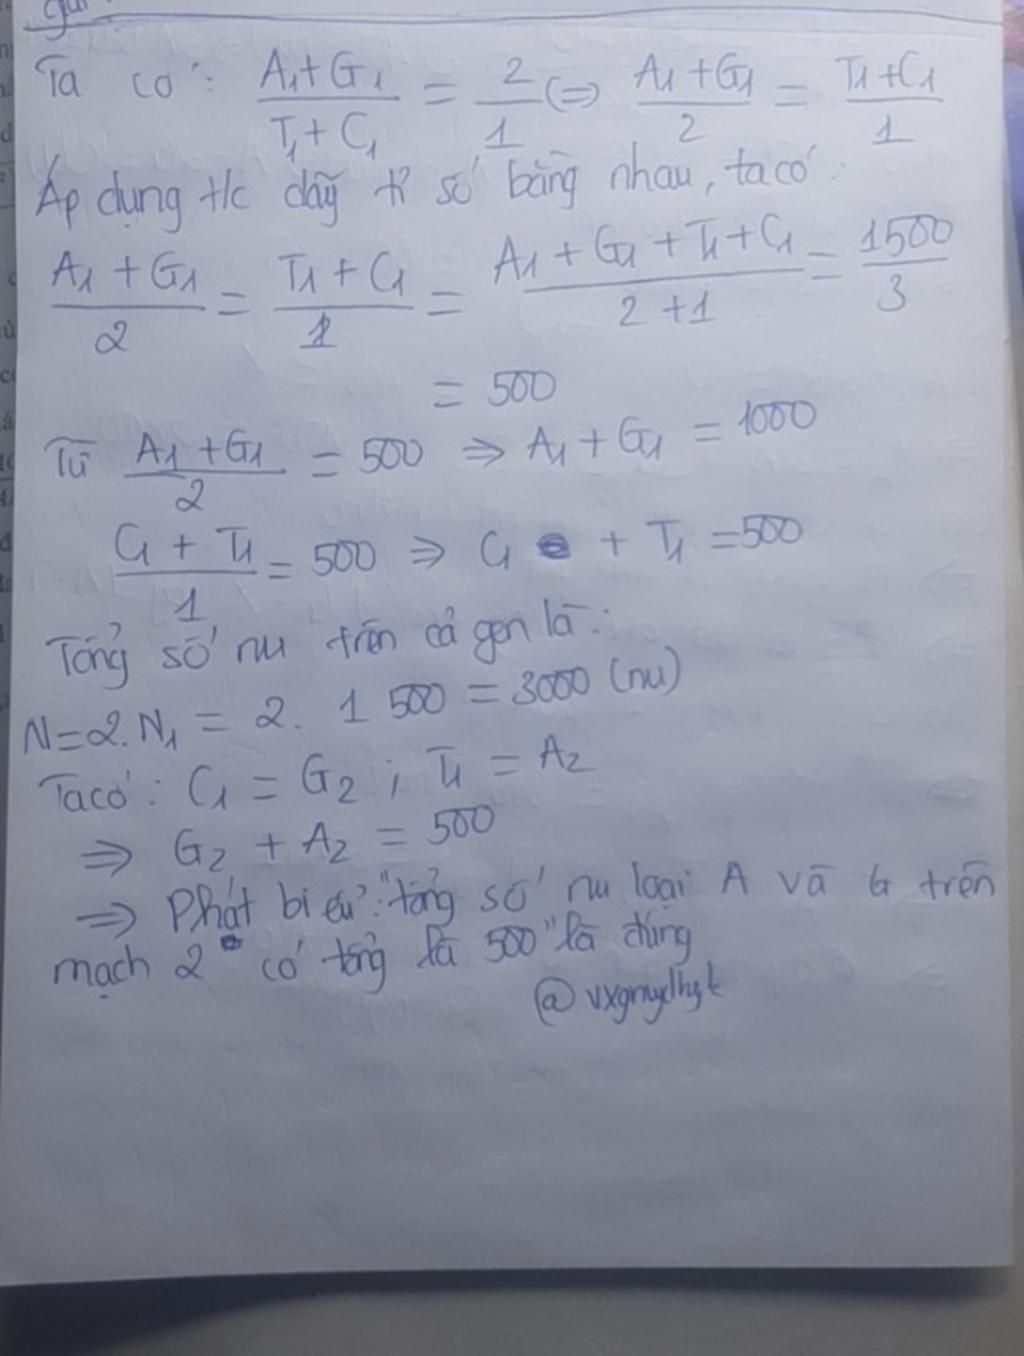 Ta có: A1+G1/T1+C1 = 2/1 (=) A1+G1/2 = T1+C1/1
Áp dụng t/c dãy tỉ số bằng nhau, ta có:
A1+G1/2 = T1+C1/1 = A1+G1+T1+C1/2+1 = 1500/3
= 500
Từ A1+G1/2 = 500 => A1+G1 = 1000
C1+T1/1 = 500 => C1 + T1 = 500
Tổng số nu trên cả gen là:
N=2.N1 = 2. 1 500 = 3000 (nu)
Ta có: C1 = G2 ; T1 = A2
=> G2 + A2 = 500
=> Phát biểu: "tổng số nu loại A và G trên
mạch 2 có tổng là 500" là đúng